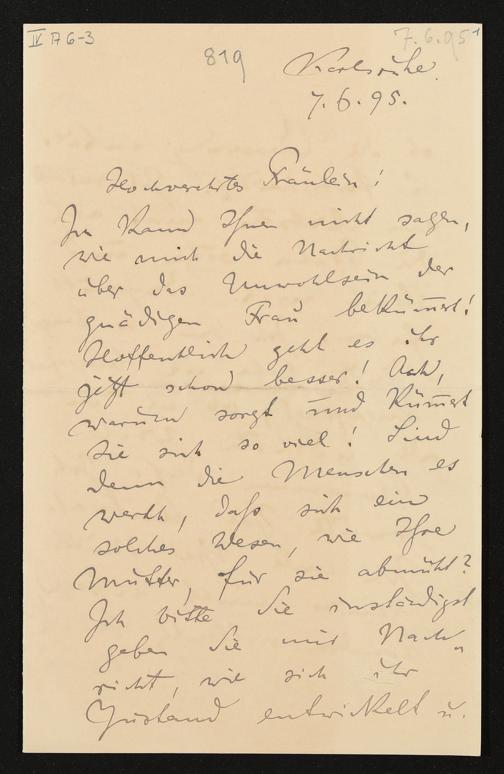 IV A 6-3
819
7.6.95¹
Karlsruhe.
7.6.95.
Hochverehrtes Fräulein!
Ich kann Ihnen nicht sagen,
wie mich die Nachricht
über das Unwohlsein der
gnädigen Frau bekümm̄ert!
Hoffentlich geht es ihr
jetzt schon besser! Ach,
warum sorgt und kümm̄ert
Sie sich so viel! Sind
denn die Menschen es
werth, daſs sich ein
solches Wesen, wie Ihre
Mutter, für sie abmüht?
Ich bitte Sie inständigst
geben Sie mir Nach„
richt, wie sich ihr
Zustand entwickelt u.